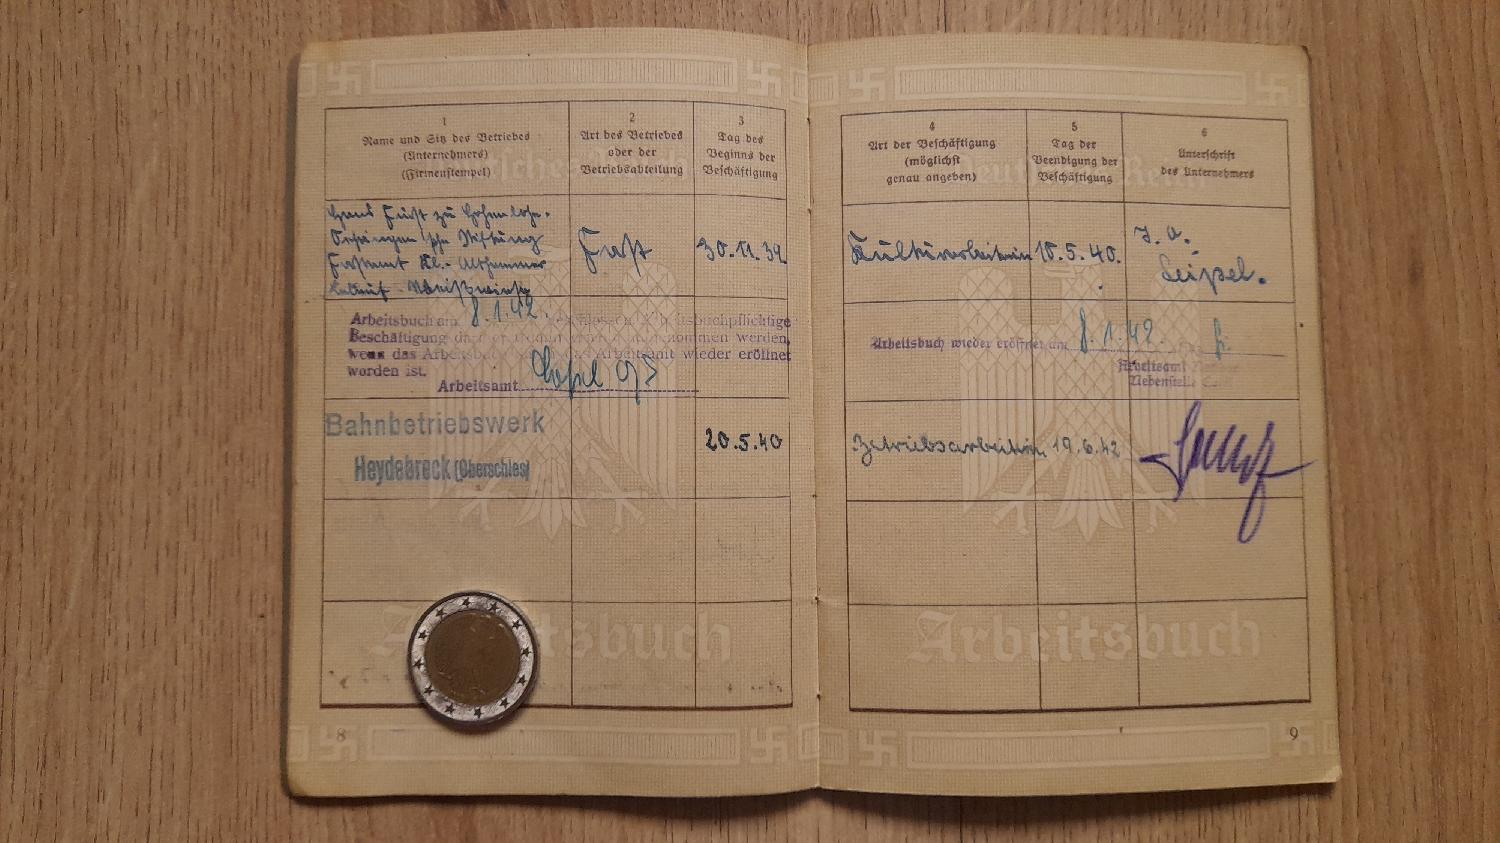 1
Name und Sitz des Betriebes
(Unternehmers)
(Firmenstempel)
2
Art des Betriebes
oder der
Betriebsabteilung
3
Tag des
Beginns der
Beschäftigung
Hans Fürst zu Hohenlohe-
Forstamt Kl.-Althammer
Forst
30.11.39
Arbeitsbuch am 8.1.42. geschlossen.
Beschäftigung darf er nommen werden,
wenn das Arbeitsbuch Arbeitsamt wieder eröffnet
worden ist.
Arbeitsamt Cosel O/S
Bahnbetriebswerk
Heydebreck (Oberschles)
20.5.40
Arbeitsbuch
8
4
Art der Beschäftigung
(möglichst
genau angeben)
5
Tag der
Beendigung der
Beschäftigung
6
Unterschrift
des Unternehmers
Deutsches Reich
Kulturarbeiterin
18.5.40.
J. A.
Seipel.
Arbeitsbuch wieder eröffnet am 8.1.42.
Arbeitsamt
Nebenstelle
Betriebsarbeiterin
19.6.42
Arbeitsbuch
9